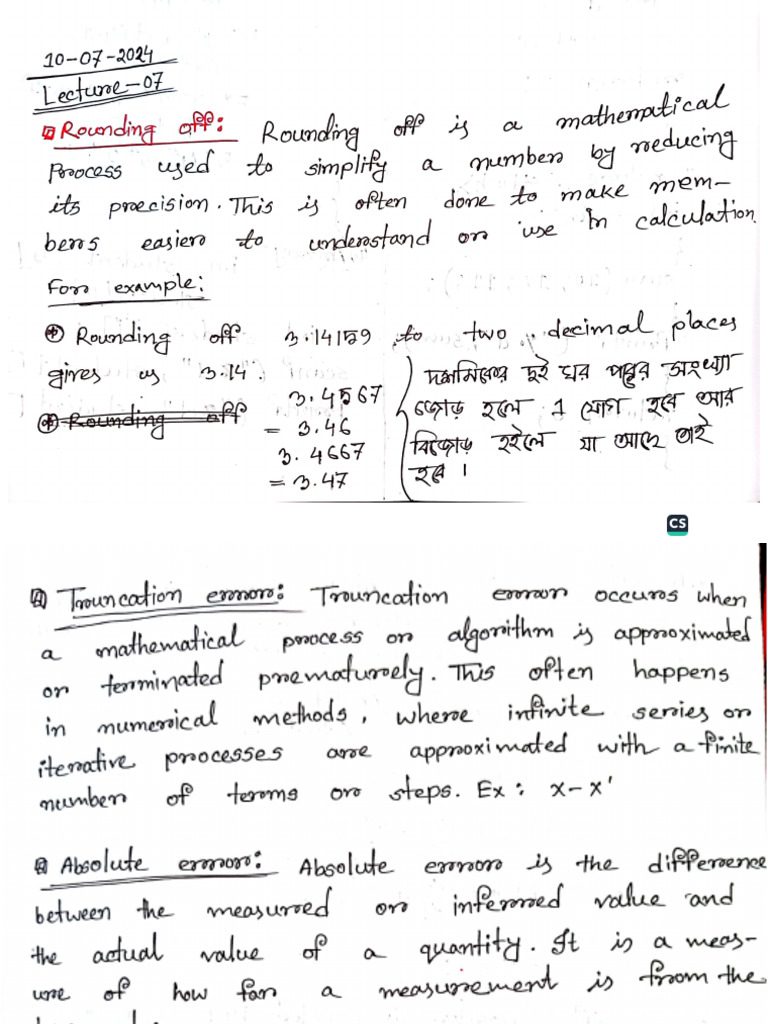 10-07-2024
Lecture-07
Rounding off: Rounding off is a mathematical
Process used to simplify a number by reducing
its precision. This is often done to make mem-
bers easier to understand or use In calculation.
For example:
Rounding off 3.14159 to two decimal places
gives us 3.14.
3.4567
Rounding off
= 3.46
3.4667
= 3.47
দশমিকের দুই ঘর পরের সংখ্যা
জোড় হলে 1 যোগ হবে আর
বিজোড় হইলে যা আছে তাই
হবে।
CS
Truncation error: Truncation error occurs when
a mathematical process or algorithm is approximated
or terminated prematurely. This often happens
in numerical methods, where infinite series or
iterative processes are approximated with a finite
number of terms or steps. Ex: x-x'
Absolute error: Absolute error is the difference
between the measured or inferred value and
the actual value of a quantity. It is a meas-
ure of how far a measurement is from the